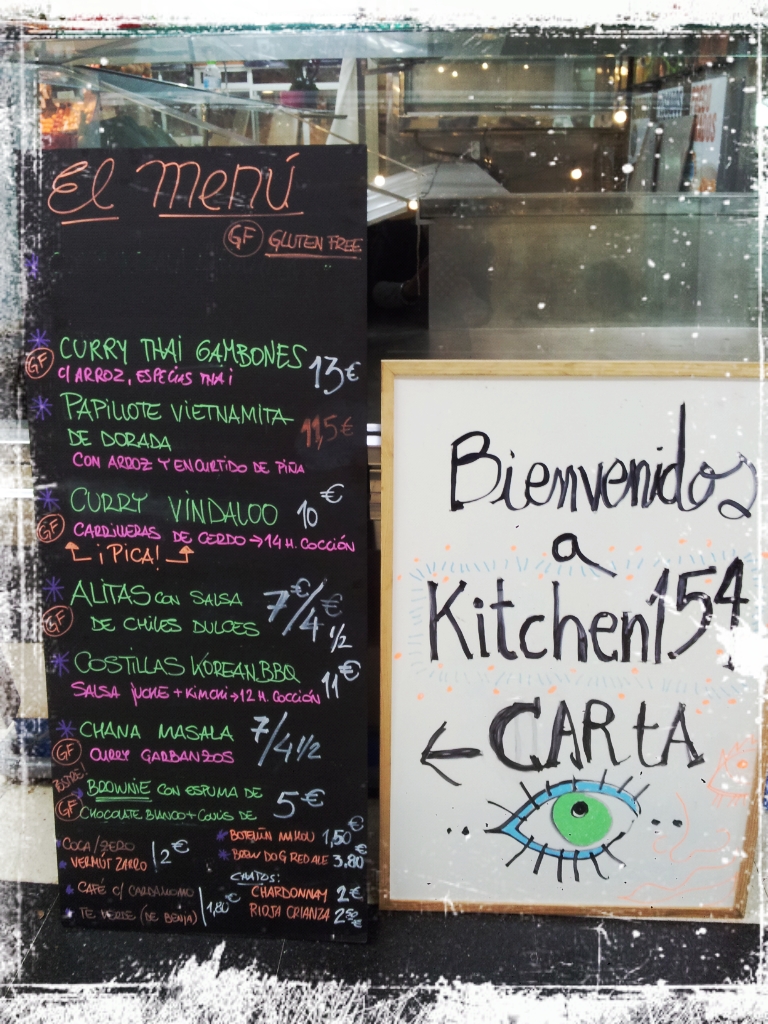 El Menú
GF GLUTEN FREE
GF CURRY THAI GAMBONES 13€
C/ ARROZ, ESPECIAS THAI
PAPILLOTE VIETNAMITA
DE DORADA 11,5€
CON ARROZ Y ENCURTIDO DE PIÑA
CURRY VINDALOO 10€
GF CARRILLERAS DE CERDO → 14 H. COCCIÓN
¡PICA!
ALITAS CON SALSA 7€/4€ 1/2
GF DE CHILES DULCES
COSTILLAS KOREAN BBQ 11€
SALSA + KIMCHI → 12 H. COCCIÓN
CHANA MASALA 7/4 1/2
GF CURRY GARBANZOS
BROWNIE CON ESPUMA DE 5€
GF CHOCOLATE BLANCO + COULIS DE
COCA/ZERO 2€
VERMÚT ZARRO
CAFÉ C/ CARDAMOMO 1,80€
TE VERDE
BOTELLÍN MAHOU 1,50€
BREW DOG RED ALE 3,80€
CHATOS:
CHARDONNAY 2€
RIOJA CRIANZA 2,50€
Bienvenidos
a
Kitchen 154
← CARtA